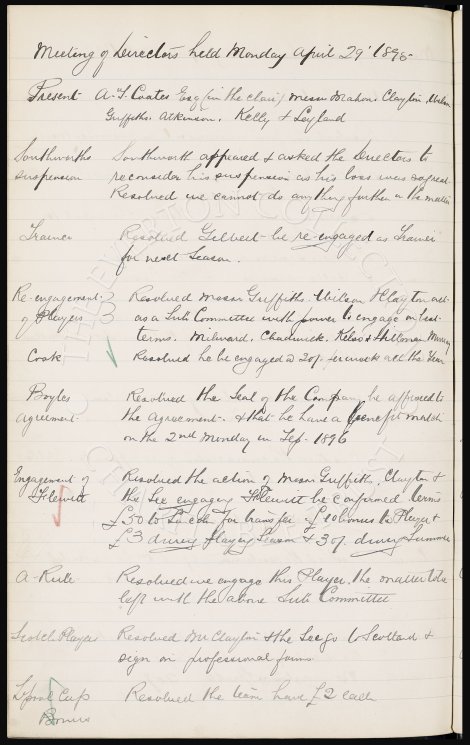 Meeting of Directors held Monday April 29' 1895
Present A. T. Coates Esq (in the chair) Messrs Mahon. Clayton. Wilson
Griffiths. Atkinson. Kelly & Leyland
Southworths Southworth appeared & asked the Directors to
suspension reconsider his suspension as his loss was so great.
Resolved we cannot do anything further in the matter
Trainer Resolved Gilbert be re-engaged as Trainer
for next Season.
Re-engagement Resolved Messrs Griffiths. Wilson & Clayton act
of Players as a Sub Committee with power to engage on best
terms. Milward. Chadwick. Kelso & Hillman Murray
Cook Resolved he be engaged @ 20/- all the Year
Boyles Resolved the Seal of the Company be affixed to
agreement the agreement & that he have a benefit match
on the 2nd Monday in Sep. 1896
Engagement of Resolved the action of Messrs Griffiths, Clayton &
Hewitt the Sec engaging Hewitt be confirmed terms
£50 to for transfer, £10 bonus to Player &
£3 during Playing Season & 30/- during Summer
A. Rule Resolved we engage this Player, the matter to be
left with the above Sub Committee
Scotch Players Resolved Mr Clayton & the Sec go to Scotland &
sign on professional forms
L'pool Cup Resolved the team have £2 each
Bonus
THE EVERTON COLLECTION